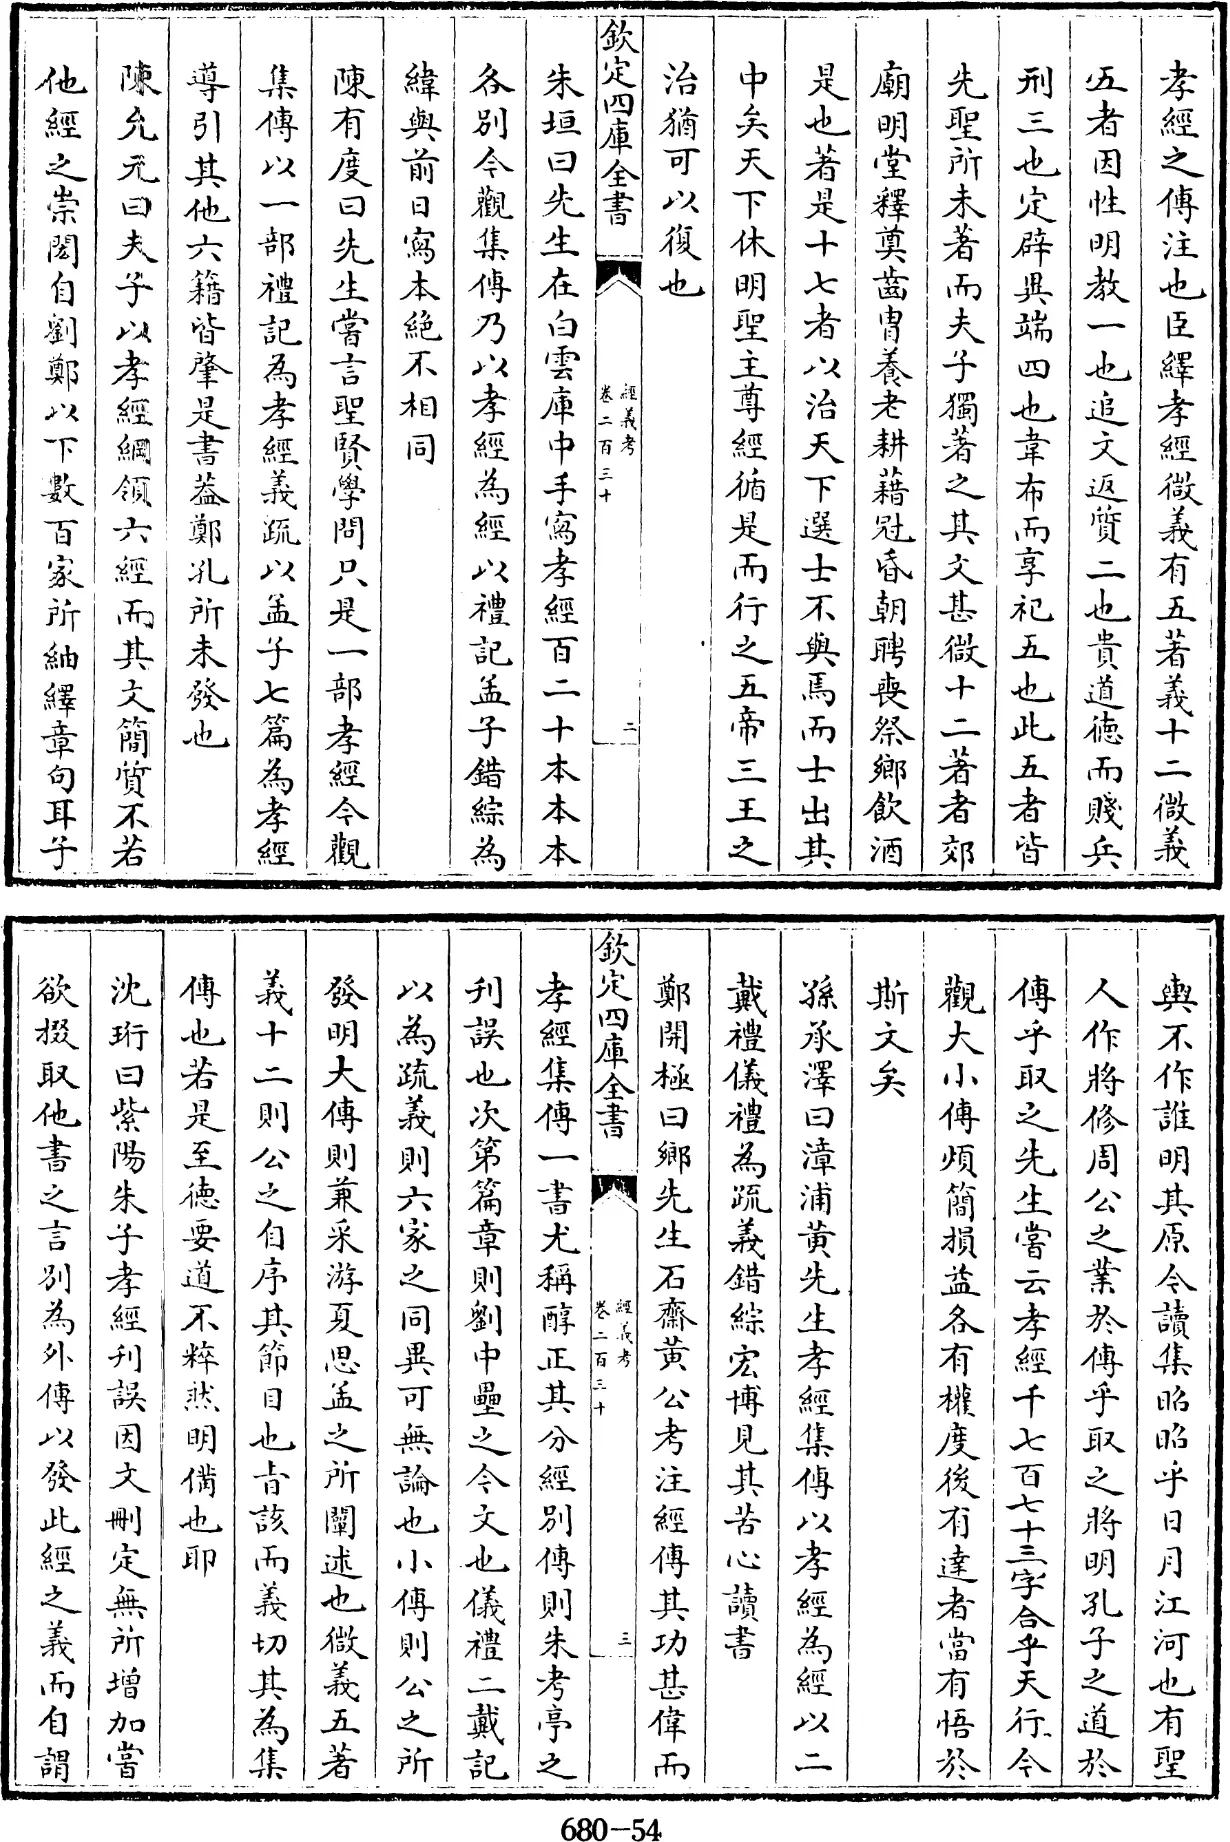 孝經之傳注也臣繹孝經微義有五著義十二微義
五者因性明教一也追文返質二也貴道德而賤兵
刑三也定辟異端四也韋布而享祀五也此五者皆
先聖所未著而夫子獨著之其文甚微十二著者郊
廟明堂釋奠齒胄養老耕藉冠昏朝聘喪祭鄉飲酒
是也著是十七者以治天下選士不與焉而士出其
中矣天下休明聖主尊經循是而行之五帝三王之
治猶可以復也
欽定四庫全書
經義考
卷二百三十
二
朱垣曰先生在白雲庫中手寫孝經百二十本本本
各別今觀集傳乃以孝經為經以禮記孟子錯綜為
緯與前日寫本絕不相同
陳有度曰先生嘗言聖賢學問只是一部孝經今觀
集傳以一部禮記為孝經義疏以孟子七篇為孝經
導引其他六籍皆肇是書葢鄭孔所未發也
陳允元曰夫子以孝經綱領六經而其文簡質不若
他經之崇閎自劉鄭以下數百家所紬繹章句耳子
輿不作誰明其原今讀集昭昭乎日月江河也有聖
人作將修周公之業於傳乎取之將明孔子之道於
傳乎取之先生嘗云孝經千七百七十三字合乎天行今
觀大小傳煩簡損益各有權度後有達者當有悟於
斯文矣
孫承澤曰漳浦黃先生孝經集傳以孝經為經以二
戴禮儀禮為疏義錯綜宏博見其苦心讀書
鄭開極曰鄉先生石齋黃公考注經傳其功甚偉而
欽定四庫全書
經義考
卷二百三十
三
孝經集傳一書尤稱醇正其分經別傳則朱考亭之
刊誤也次第篇章則劉中壘之今文也儀禮二戴記
以為疏義則六家之同異可無論也小傳則公之所
發明大傳則兼采游夏思孟之所闡述也微義五著
義十二則公之自序其節目也旨該而義切其為集
傳也若是至德要道不粹然明備也耶
沈珩曰紫陽朱子孝經刊誤因文刪定無所增加嘗
欲掇取他書之言別為外傳以發此經之義而自謂
680-54